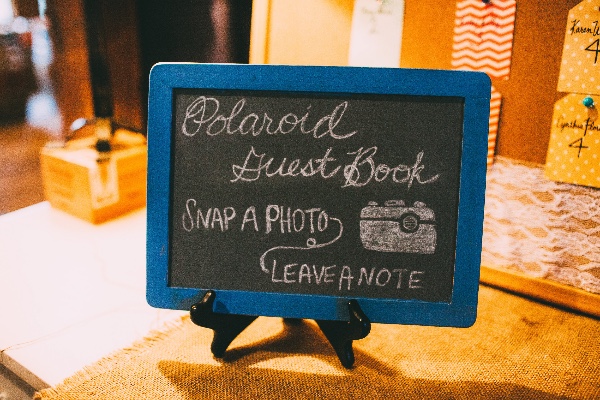 Polaroid
Guest Book
SNAP A PHOTO
LEAVE A NOTE
Karen
4
Cynthia
4